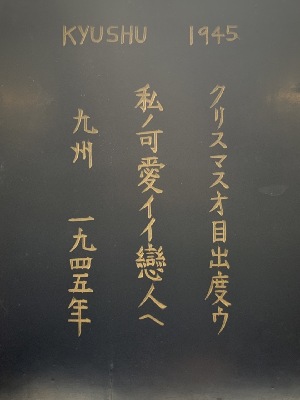 KYUSHU 1945
クリスマスオ目出度ウ
私ノ可愛イイ戀人ヘ
九州 一九四五年